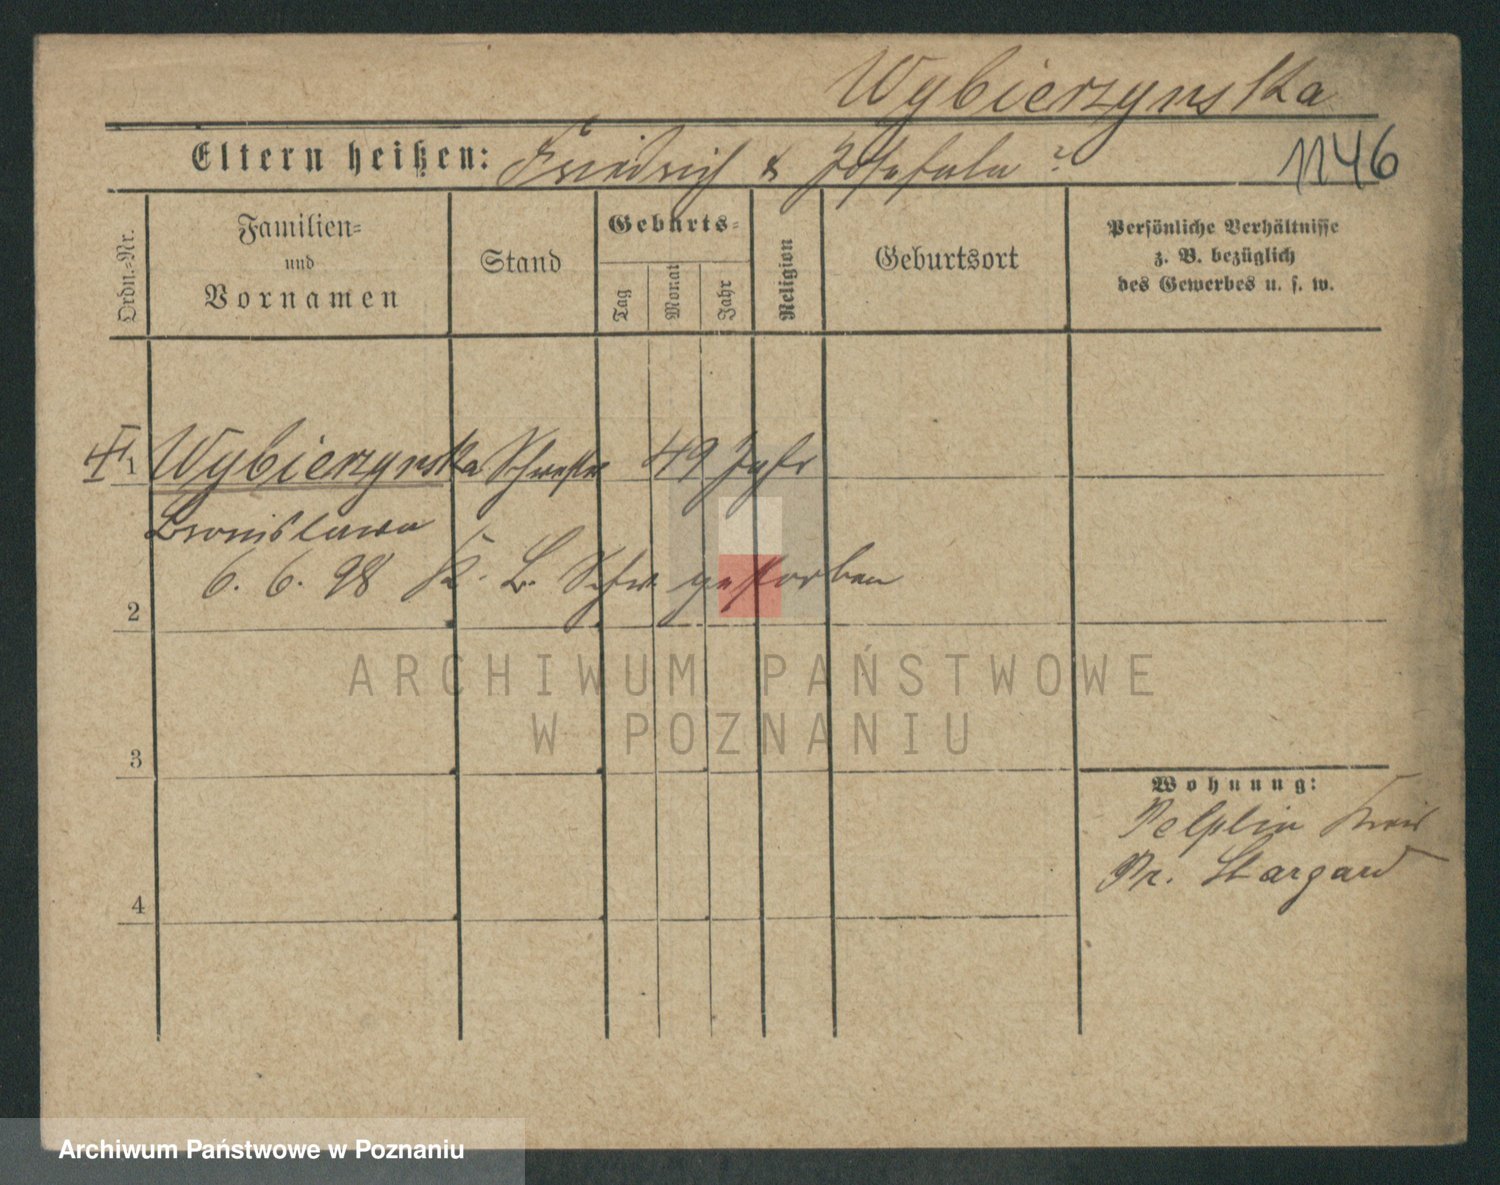 Wybierzynska
Eltern heißen: Friedrich & Josefala ?
1146
Ordn.-Nr.
Familien-
und
Vornamen
Stand
Geburts-
Tag
Monat
Jahr
Religion
Geburtsort
Persönliche Verhältnisse
z. B. bezüglich
des Gewerbes u. s. w.
1 Wybierzynska Schwester 49 Jahr
Bronislawa
6. 6. 98 K. B. Schw. gestorben
2
ARCHIWUM PAŃSTWOWE
W POZNANIU
3
Wohnung:
Pelplin Kreis
Pr. Stargard
4
Archiwum Państwowe w Poznaniu